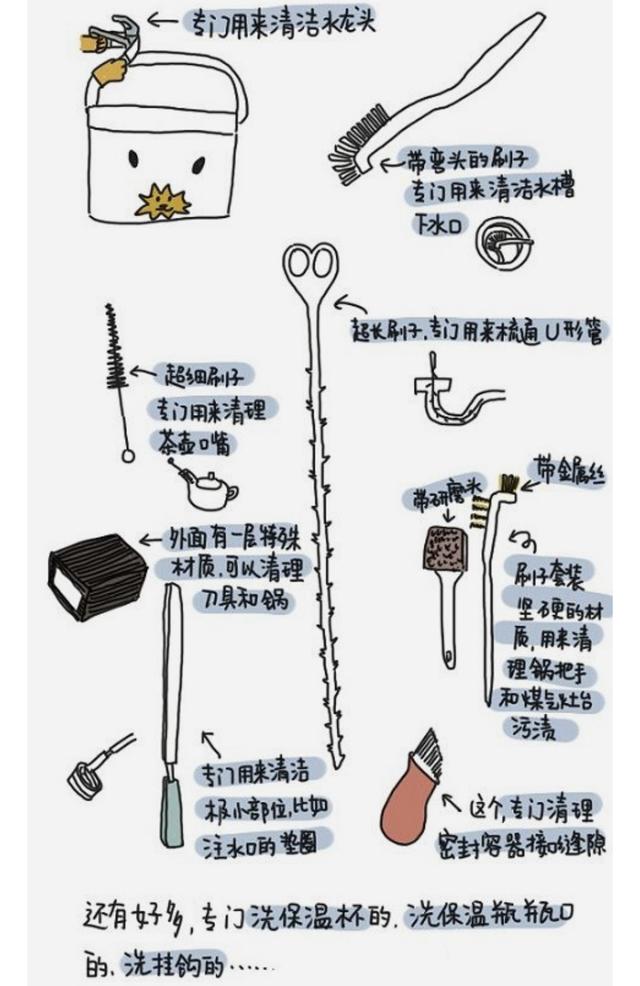 专门用来清洁水龙头
带弯头的刷子
专门用来清洁水槽
下水口
超长刷子,专门用来梳通U形管
超细刷子
专门用来清理
茶壶口嘴
带金属丝
带研磨头
外面有一层特殊
材质,可以清理
刀具和锅
刷子套装
坚硬的材
质,用来清
理锅把手
和煤气灶台
污渍
专门用来清洁
极小部位,比如
注水口的垫圈
这个,专门清理
密封容器接口缝隙
还有好多,专门洗保温杯的.洗保温瓶瓶口
的.洗挂钩的……